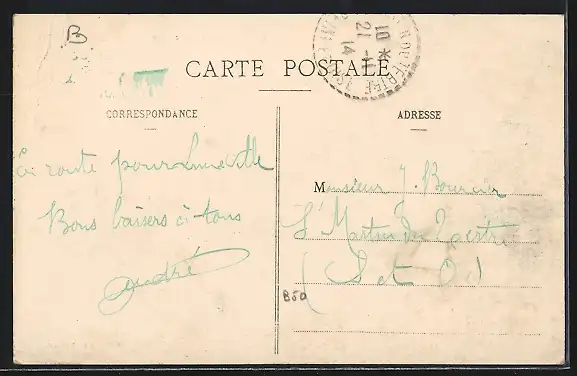 B
10 *
21 - 11
14
CARTE POSTALE
CORRESPONDANCE
ADRESSE
En route pour Lunéville
Bons baisers à tous
André
Monsieur J. Bourcier
St Martin du Tertre
(S et O)
B50